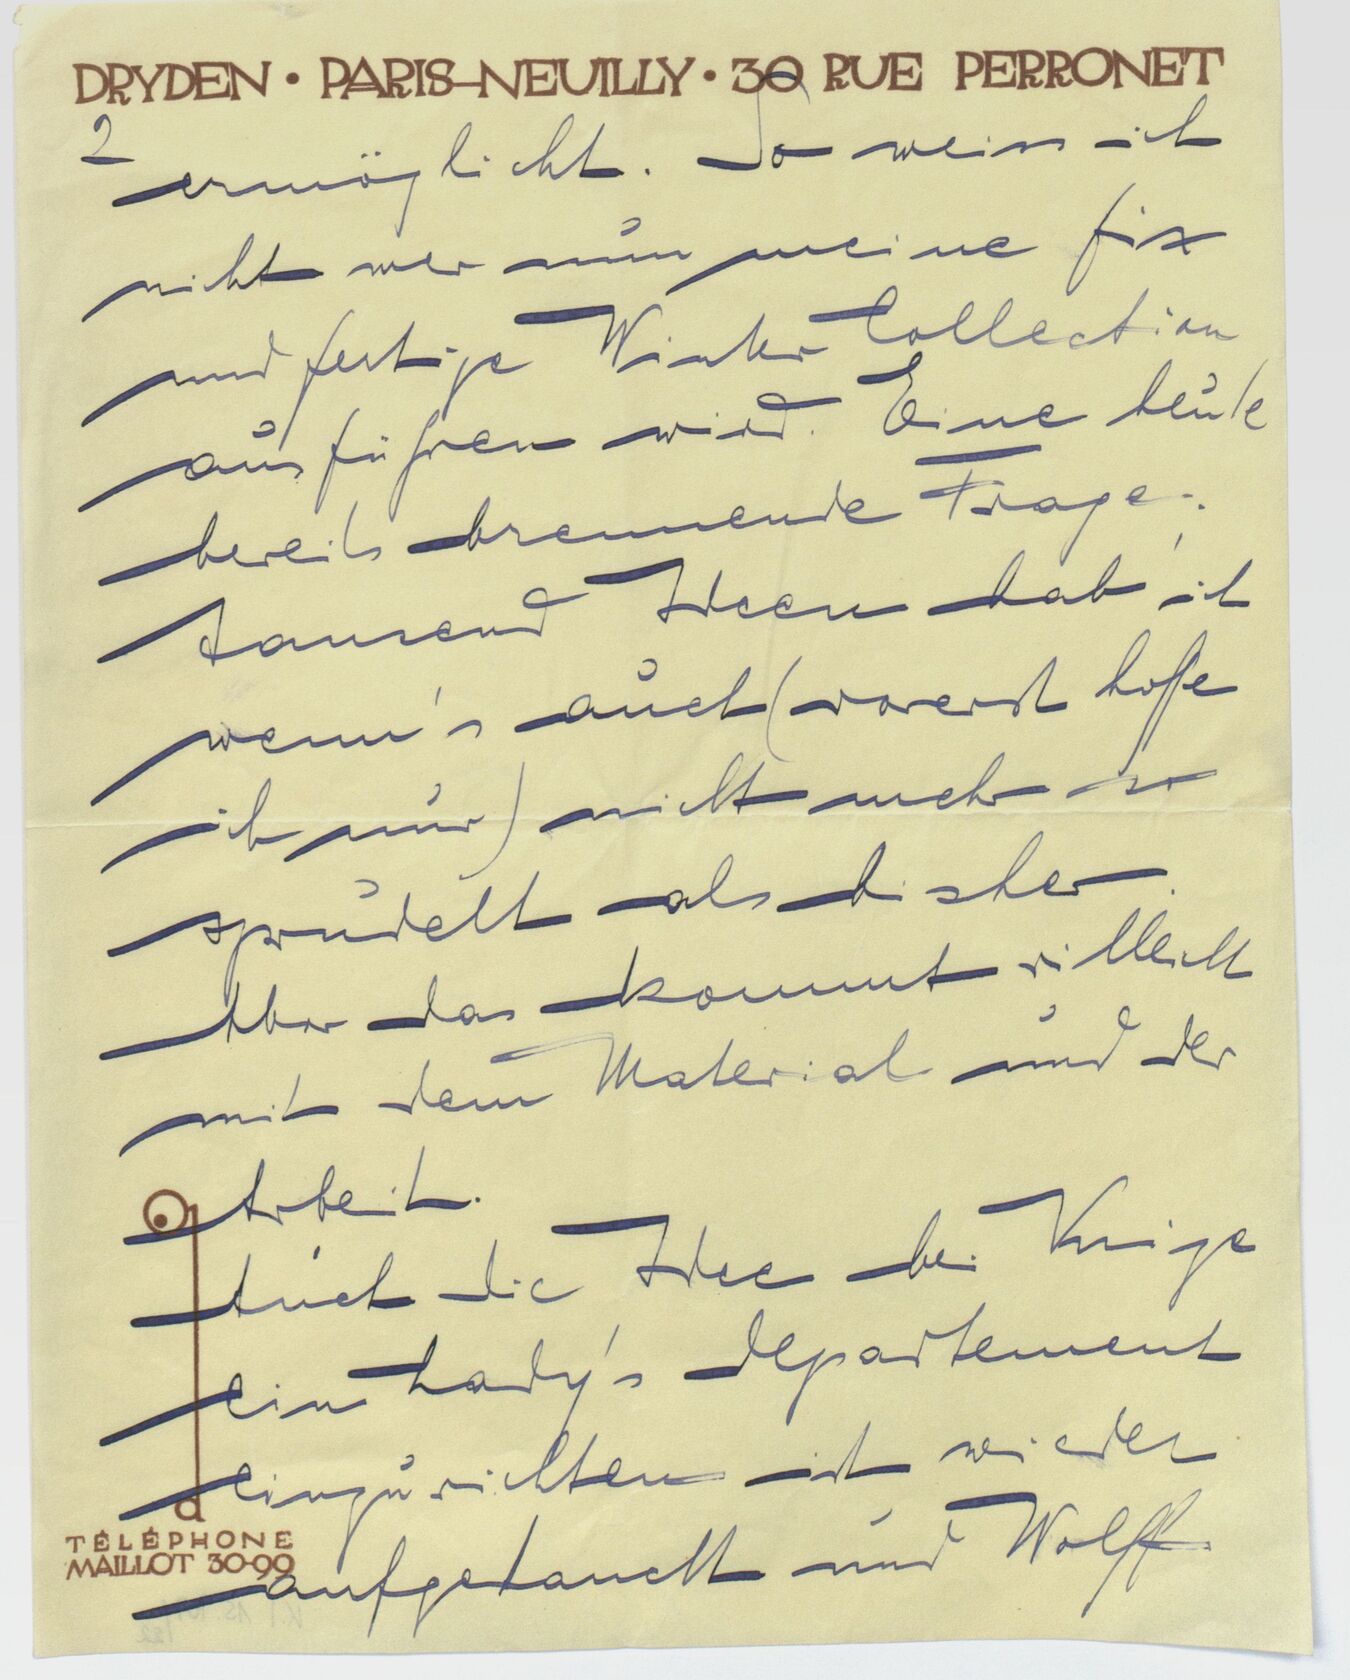 DRYDEN • PARIS-NEUILLY • 30 RUE PERRONET
2
ermöglicht. So weiss ich
nicht wer nun meine fix
und fertige Winter Collection
ausführen wird. Eine heute
bereits brennende Frage.
tausend Ideen hab' ich
wenn's auch (vorerst hoffe
ich nur) nicht mehr so
sprudelt als bisher.
Aber das kommt villeicht
mit dem Material und der
Arbeit.
Auch die Idee bei Knige
ein Lady's departement
einzurichten ist wieder
aufgetaucht und Wolff
d
TÉLÉPHONE
MAILLOT 30-99